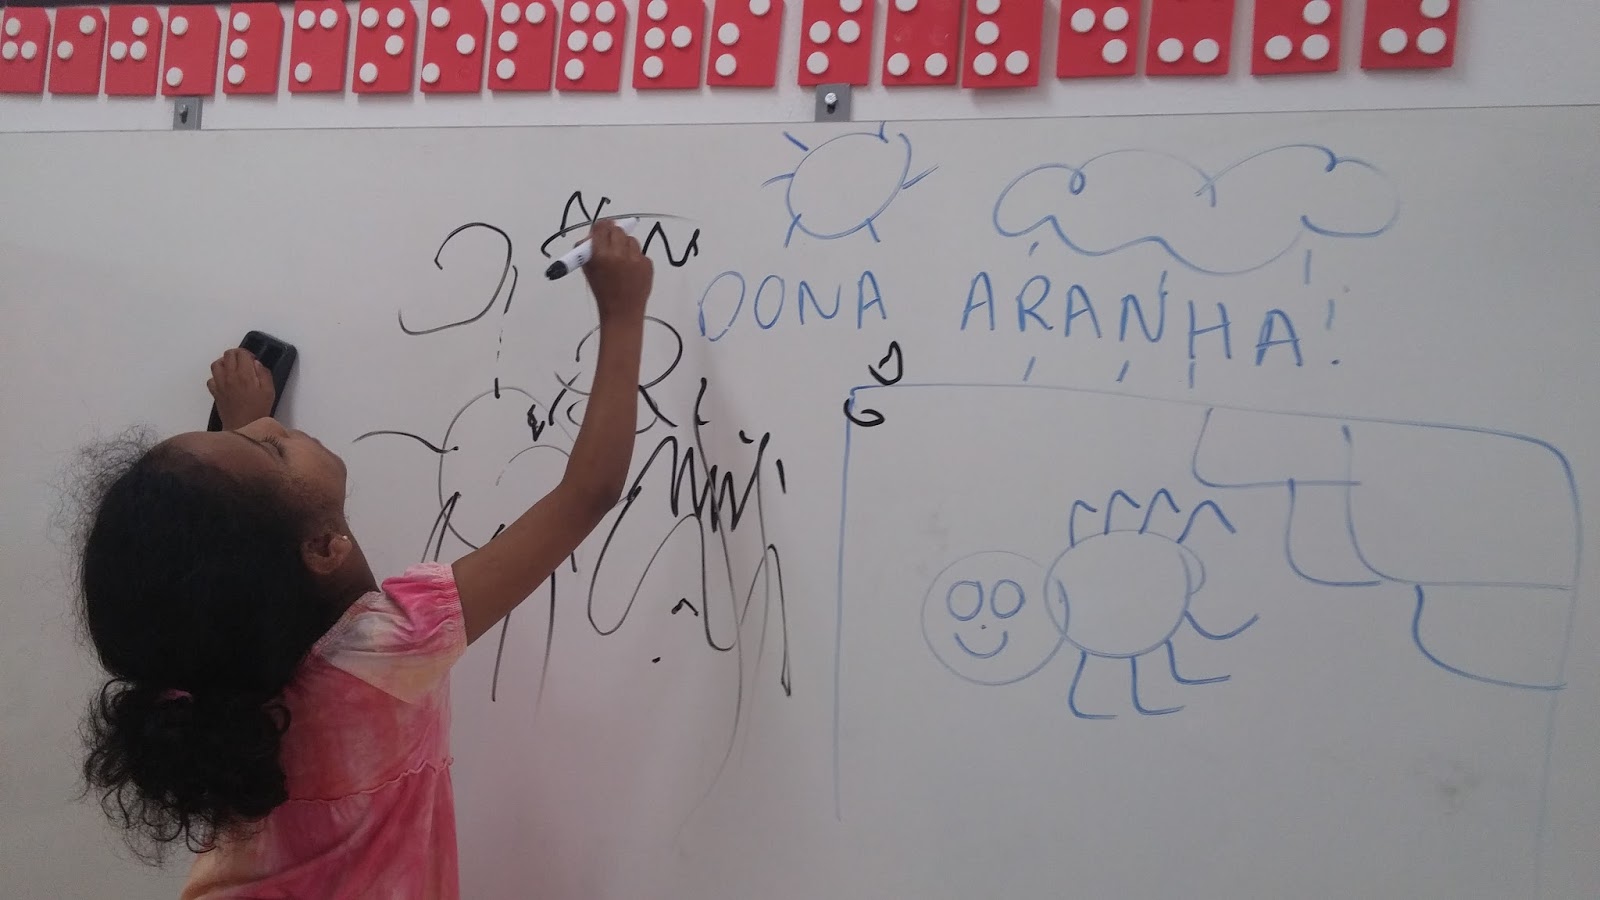 DONA ARANHA!